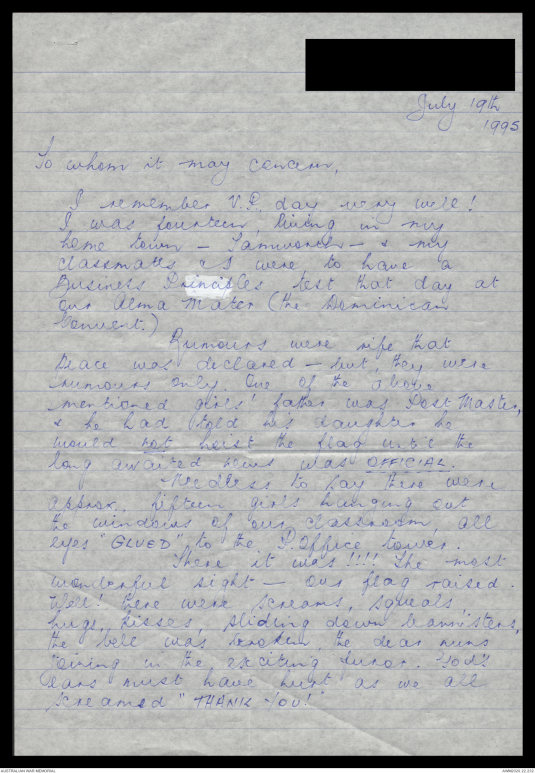 July 19th
1995
To whom it may concern,
I remember V.P. day very well!
I was fourteen, living in my
home town – Tamworth – & my
classmates & I were to have a
Business Principles test that day at
our Alma Mater (the Dominican
Convent.)
Rumours were rife that
Peace was declared – but, they were
rumours only. One of the above
mentioned girls' father was Post Master,
& he had told his daughter he
would not hoist the flag until the
long awaited news was OFFICIAL.
Needless to say there were
approx. fifteen girls hanging out
the windows of our classroom, all
eyes "GLUED" to the P.Office tower.
There it was!!!! The most
wonderful sight – our flag raised
Well! there were screams, squeals,
hugs, kisses, sliding down bannisters,
the bell was broken the dear nuns
joining in the exciting furor. God's
ears must have hurt as we all
screamed "THANK YOU!"
AUSTRALIAN WAR MEMORIAL